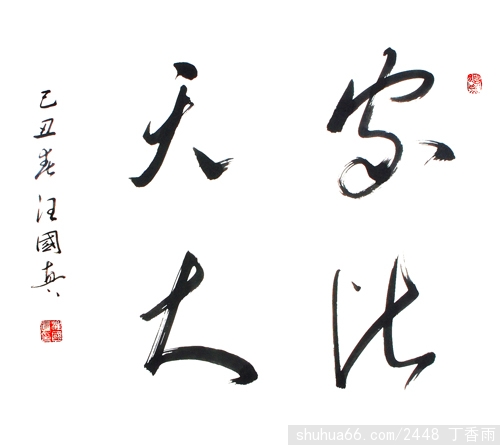 家比
天大
己丑春汪國真
shuhua66.com/2448 丁香雨